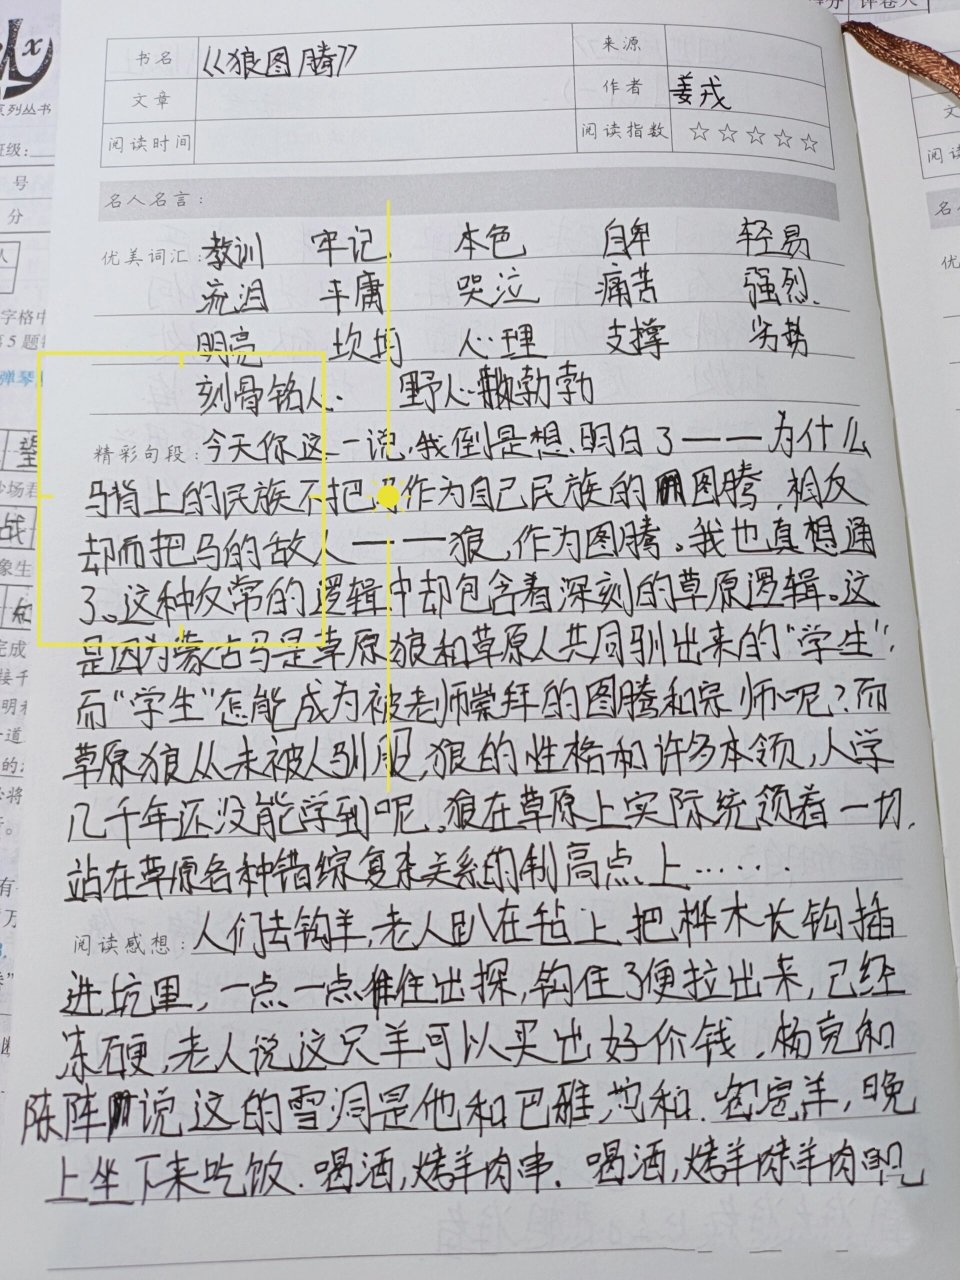 书名 《狼图腾》 来源
文章 作者 姜戎
阅读时间 阅读指数 ☆☆☆☆☆
名人名言：
优美词汇：教训 牢记 本色 自卑 轻易
流泪 平庸 哭泣 痛苦 强烈.
明亮 坎坷 心理 支撑 劣势
刻骨铭人. 野心勃勃
精彩句段：今天你这一说,我倒是想明白了——为什么
马背上的民族不把马作为自己民族的图腾,相反
却而把马的敌人——狼,作为图腾。我也真想通
了。这种反常的逻辑中却包含着深刻的草原逻辑。这
是因为蒙古马是草原狼和草原人共同驯出来的"学生",
而"学生"怎能成为被老师崇拜的图腾和宗师呢?而
草原狼从未被人驯服,狼的性格和许多本领,人学
几千年还没能学到呢。狼在草原上实际统领着一切,
站在草原各种错综复杂关系的制高点上……
阅读感想：人们去钩羊,老人趴在毡上把桦木长钩插
进坑里,一点一点往出探,钩住了便拉出来,已经
冻石硬,老人说这只羊可以买出好价钱.杨克和
陈阵说这的雪洞是他和巴雅 和. 羊,晚
上坐下来吃饭.喝酒,烤羊肉串.喝酒,烤羊烤羊肉串吧
系列丛书
班级:
号
分